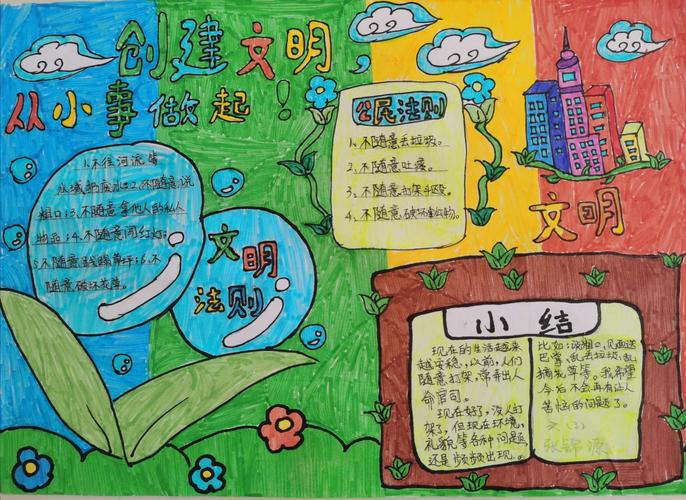 创建文明，
从小事做起！
1、不往河流等
水域扔废水；2、不随意说
粗口；3、不随意拿他人的私人
物品；4、不随意闯红灯；
5、不随意践踏草坪；6、不
随意破坏花草。
文明
法则
公民法则
1、不随意丢垃圾。
2、不随意吐痰。
3、不随意打架斗殴。
4、不随意破坏建筑物。
文明
小结
现在的生活越来
越安稳，以前，人们
随意打架，常弄出人
命官司。
现在好了，没人打
架了，但现在环境，
礼貌等各种问题
还是频频出现。
比如：说粗口，见面送
巴掌，乱丢垃圾，乱
摘花草等。我希望
今后不会再有让人
苦恼的问题了。
张 源